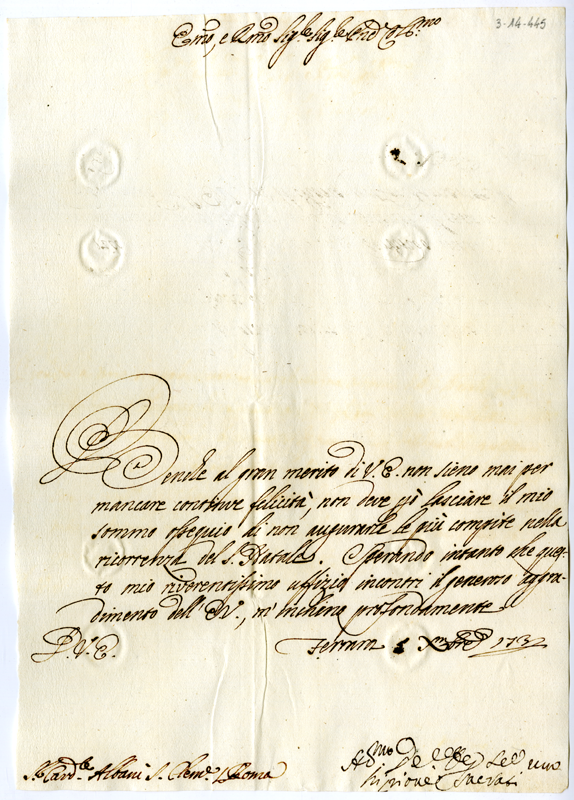 3-14-445
Emo, e Rmo Sig.re Sig.re Prõn Colmo
Benche al gran merito di V. E. non sieno mai per
mancare continue felicità, non deve p̀ò lasciare il mio
sommo ossequio di non augurarle le più compite nella
ricorrenza del S. Natale. Sperando intanto che ques-
to mio riverentissimo uffizio incontri il generoso aggra-
dimento dell' E. V., m'inchino profondamente.
D. V. E.
Ferrara Xmbre 173
S.r Card.le Albani S. Clem.te Roma